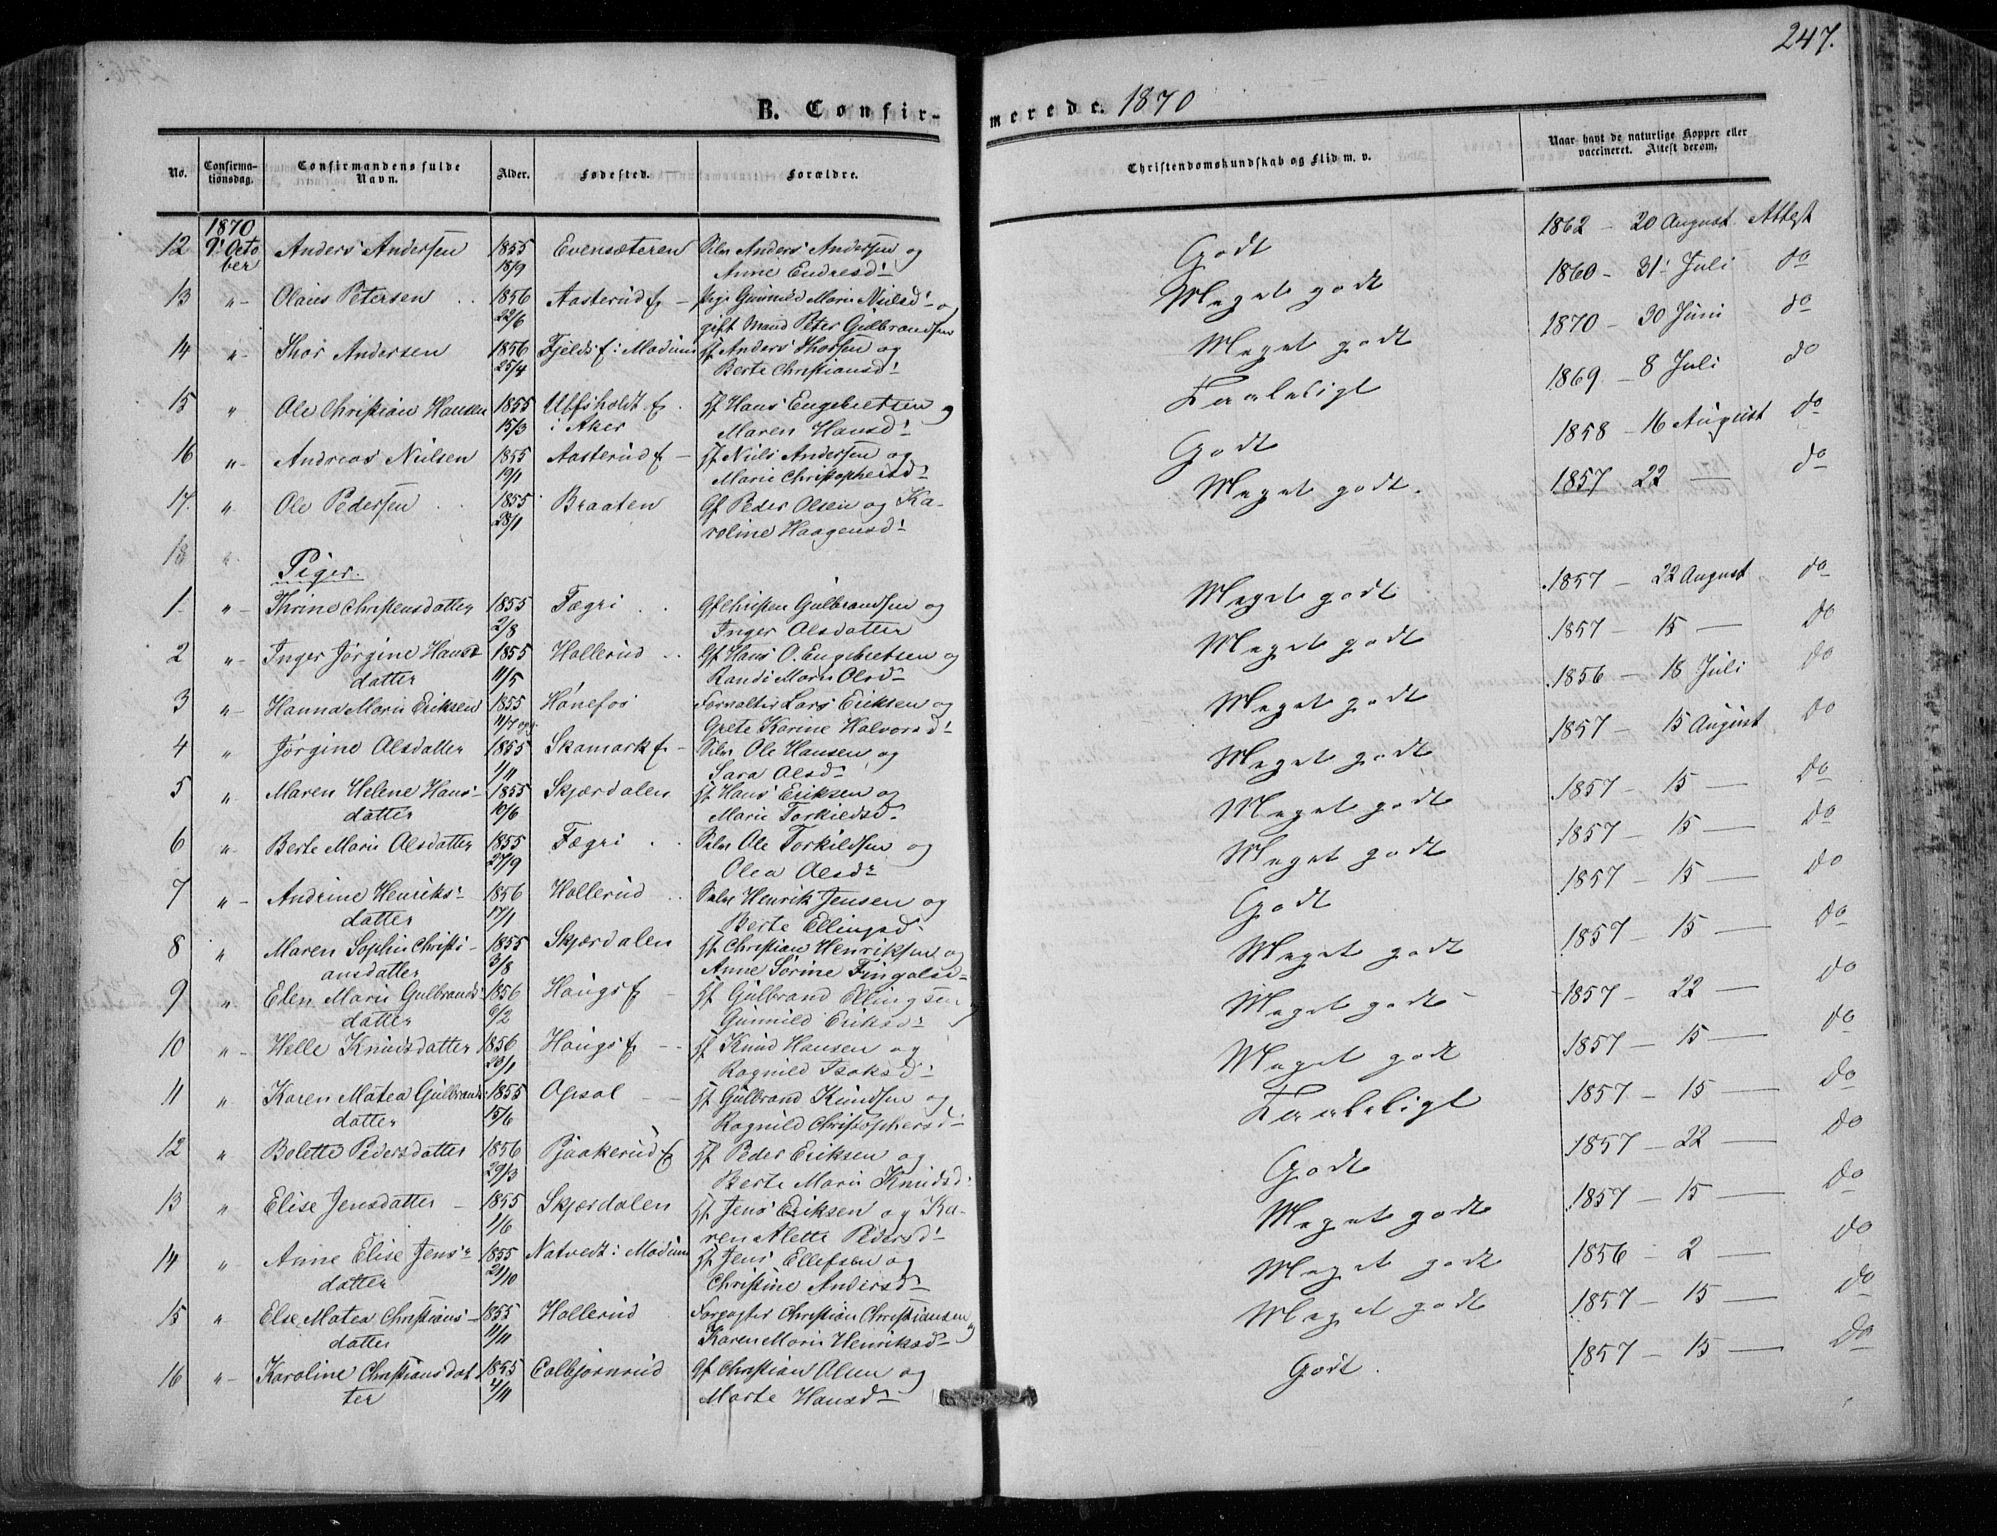 247.
B. Confirmerede. 1870
No. | Confirmationsdag. | Confirmandens fulde Navn. | Alder. | Fødested. | Forældre. | Christendomskundskab og Flid m. v. | Naar havt de naturlige Kopper eller vaccineret. Attest derom.
1870
12 | 9' October | Anders Andersen | 1855 18/9 | Evensæteren | Selv Anders Andersen og Anne Endresd: | Godt | 1862 - 20 August Attest
13 | " | Olaus Petersen | 1856 22/6 | Aasterud f | Pige Gunnild Marie Nielsd: og gift Mand Peter Gulbrandsen | Meget godt | 1860 - 31' Juli do
14 | " | Thor Andersen | 1856 25/4 | Fjelds f: Modum | Hf Anders Thorsen og Berte Christiansd: | Meget godt | 1870 - 30 Juni do
15 | " | Ole Christian Hansen | 1855 15/3 | Ulfsholdt f. i Aker | Hf Hans Engebretsen og Maren Hansd: | Taaleligt | 1869 - 8 Juli do
16 | " | Andreas Nielsen | 1855 19/1 | Aasterud f | Hf Niels Andersen og Marie Christophersd: | Godt | 1858 - 16 August do
17. | " | Ole Pedersen | 1855 28/1 | Braaten | Gf Peder Olsen og Karoline Haagensd: | Meget godt. | 1857 22 — do
18 | "
Piger.
1. | " | Thrine Christensdatter | 1855 2/8 | Fægri | Gf Christen Gulbrandsen og Inger Olsdatter | Meget godt | 1857 - 22 August do
2 | " | Inger Jørgine Hansdatter | 1855 11/5 | Hollerud | Gf Hans O. Engebretsen og Randi Marie Olsd: | Meget godt | 1857 - 15 — do
3 | " | Hanna Marie Eriksen | 1855 11/7 | Hønefos | Forvalter Lars Eriksen og Grete Karine Halvorsd: | Meget godt | 1856 - 18 Juli do
4 | " | Jørgine Olsdatter | 1855 1/11 | Skamark f | Selv Ole Hansen og Sara Olsd: | Meget godt | 1857 - 15 August do
5 | " | Maren Helene Hansdatter | 1855 10/6 | Skjærdalen | Hf Hans Eriksen og Marie Torkildsd: | Meget godt | 1857 - 15 — do
6 | " | Berte Marie Olsdatter | 1855 27/9 | Fægri | Selv Ole Torkildsen og Olea Olsd: | Meget godt | 1857 - 15 — do
7 | " | Andrine Henriksdatter | 1856 17/1 | Hollerud | Selv Henrik Jensen og Berte Ellingsd: | Godt | 1857 - 15 — do
8 | " | Maren Sophie Christiansdatter | 1855 3/8 | Skjærdalen | Hf Christian Henriksen og Anne Sørine Fingalsd: | Meget godt | 1857 - 15 — do
9 | " | Elen Marie Gulbrandsdatter | 1856 6/2 | Haugs f | Hf Gulbrand Ellingsen og Gunnild Eriksd: | Meget godt | 1857 - 22 — do
10 | " | Helle Knudsdatter | 1856 20/1 | Haugs f | Hf Knud Hansen og Ragnild Isaksd: | Meget godt | 1857 - 15 — do
11 | " | Karen Matea Gulbrandsdatter | 1855 15/6 | Opsal | Hf Gulbrand Knudsen og Ragnild Christophersd: | Taaleligt | 1857 - 15 — do
12 | " | Bolette Pedersdatter | 1856 29/3 | Pjaakerud f | Hf Peder Eriksen og Berte Marie Knudsd: | Godt | 1857 - 22 — do
13 | " | Elise Jensdatter | 1855 1/6 | Skjærdalen | Hf Jens Eriksen og Karen Alette Pedersd: | Meget godt | 1857 - 15 — do
14 | " | Anne Elise Jensdatter | 1855 21/10 | Natvedt: Modum | Hf Jens Ellefsen og Christine Andersd: | Meget godt | 1856 - 2 — do
15 | " | Else Matea Christiansdatter | 1855 11/11 | Hollerud | Forpagter Christian Christiansen og Karen Marie Henriksd: | Meget godt | 1857 - 15 — do
16 | " | Karoline Christiansdatter | 1855 4/11 | Colbjørnrud | Gf Christian Olsen og Marte Hansd: | Godt. | 1857 - 15 — do